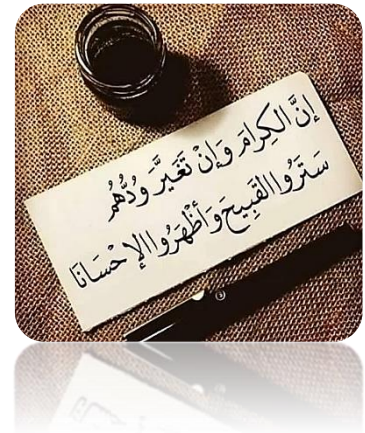 إِنَّ الكِرَامَ وَإِنْ تَغَيَّرَ وُدُّهُم
سَتَرُوا القَبِيحَ وَأَظْهَرُوا الإِحْسَانَا